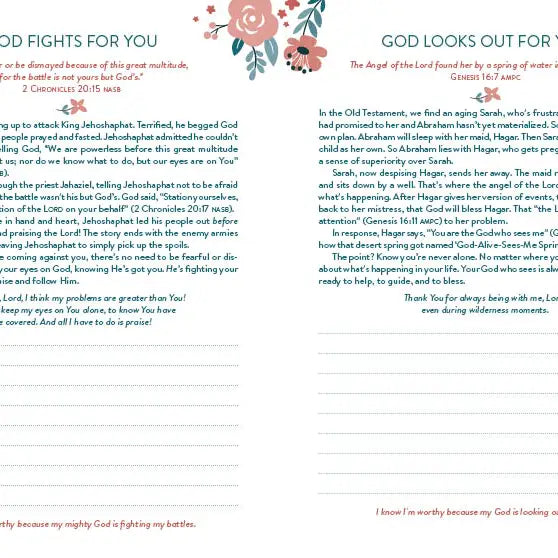 OD FIGHTS FOR YOU
r or be dismayed because of this great multitude,
for the battle is not yours but God's."
2 Chronicles 20:15 NASB
ng up to attack King Jehoshaphat. Terrified, he begged God
people prayed and fasted. Jehoshaphat admitted he couldn't
elling God, "We are powerless before this great multitude
t us; nor do we know what to do, but our eyes are on You"
B).
ough the priest Jahaziel, telling Jehoshaphat not to be afraid
the battle wasn't his but God's. God said, "Station yourselves,
tion of the LORD on your behalf" (2 Chronicles 20:17 NASB).
e in hand and heart, Jehoshaphat led his people out before
nd praising the Lord! The story ends with the enemy armies
eaving Jehoshaphat to simply pick up the spoils.
e coming against you, there's no need to be fearful or dis-
your eyes on God, knowing He's got you. He's fighting your
aise and follow Him.
, Lord, I think my problems are greater than You!
keep my eyes on You alone, to know You have
e covered. And all I have to do is praise!
rthy because my mighty God is fighting my battles.
GOD LOOKS OUT FOR Y
The Angel of the Lord found her by a spring of water i
Genesis 16:7 AMPC
In the Old Testament, we find an aging Sarah, who's frustra
had promised to her and Abraham hasn't yet materialized. So
own plan. Abraham will sleep with her maid, Hagar. Then Sara
child as her own. So Abraham lies with Hagar, who gets preg
a sense of superiority over Sarah.
Sarah, now despising Hagar, sends her away. The maid r
and sits down by a well. That's where the angel of the Lor
what's happening. After Hagar gives her version of events, t
back to her mistress, that God will bless Hagar. That "the L
attention" (Genesis 16:11 AMPC) to her problem.
In response, Hagar says, "You are the God who sees me" (G
how that desert spring got named 'God-Alive-Sees-Me Sprin
The point? Know you're never alone. No matter where yo
about what's happening in your life. Your God who sees is alwa
ready to help, to guide, and to bless.
Thank You for always being with me, Lor
even during wilderness moments.
I know I'm worthy because my God is looking ou